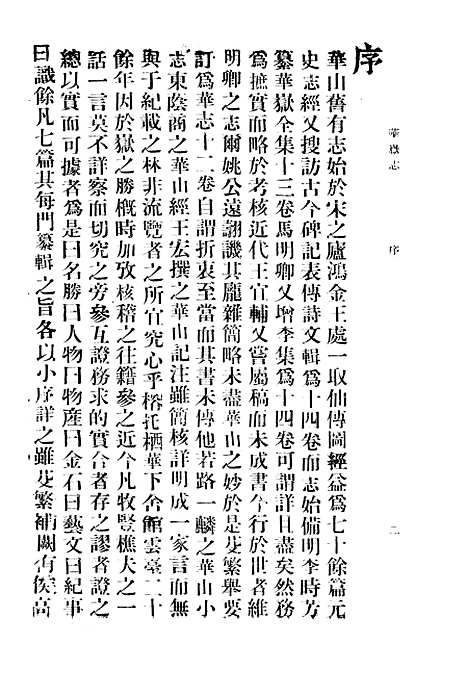 華嶽志
序
二
序
華山舊有志始於宋之廬鴻金王處一取仙傳圖經益爲七十餘篇元
史志經又搜訪古今碑記表傳詩文輯爲十四卷而志始備明李時芳
纂華嶽全集十三卷馬明卿又增李集爲十四卷可謂詳且盡矣然務
爲摭實而略於考核近代王宜輔又嘗屬稿而未成書今行於世者維
明卿之志爾姚公遠翿譏其龐雜簡略未盡華山之妙於是芟繁舉要
訂爲華志十二卷自謂折衷至當而其書未傳他若路一麟之華山小
志東蔭商之華山經王宏撰之華山記注雖簡核詳明成一家言而無
與于紀載之林非流覽者之所宜究心乎榕托栖華下舍館雲臺二十
餘年因於嶽之勝概時加攷核稽之往籍參之近今凡牧豎樵夫之一
話一言莫不詳察而切究之旁參互證務求的實合者存之謬者證之
總以實而可據者爲是曰名勝曰人物曰物産曰金石曰藝文曰紀事
曰識餘凡七篇其每門纂輯之旨各以小序詳之雖芟繁補闕有俟高